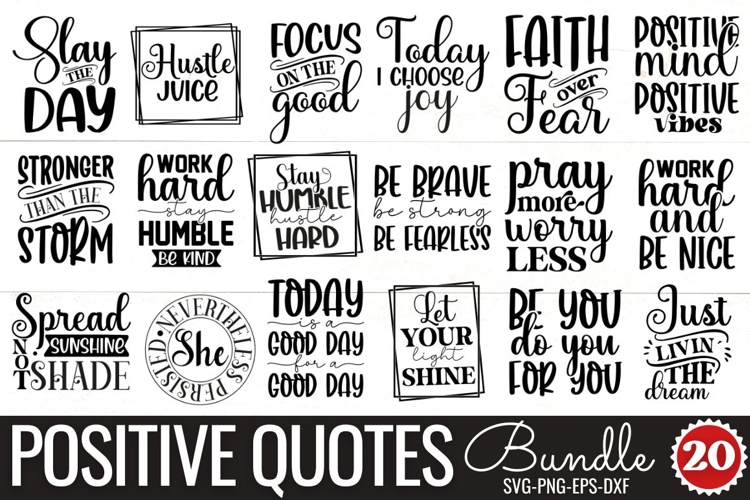 Slay
THE
DAY
Hustle
JUICE
FOCUS
ON THE
good
Today
I CHOOSE
joy
FAITH
over
Fear
POSITIVE
mind
POSITIVE
vibes
STRONGER
THAN THE
STORM
WORK
hard
stay
HUMBLE
BE KIND
Stay
HUMBLE
hustle
HARD
BE BRAVE
be strong
BE FEARLESS
pray
more
worry
LESS
WORK
hard
and
BE NICE
Spread
SUNSHINE
NOT
SHADE
NEVERTHELESS
She
PERSISTED
TODAY
is a
GOOD DAY
for a
GOOD DAY
Let
YOUR
light
SHINE
BE YOU
do you
FOR YOU
Just
LIVIN'
THE
dream
POSITIVE QUOTES Bundle 20
SVG-PNG-EPS-DXF